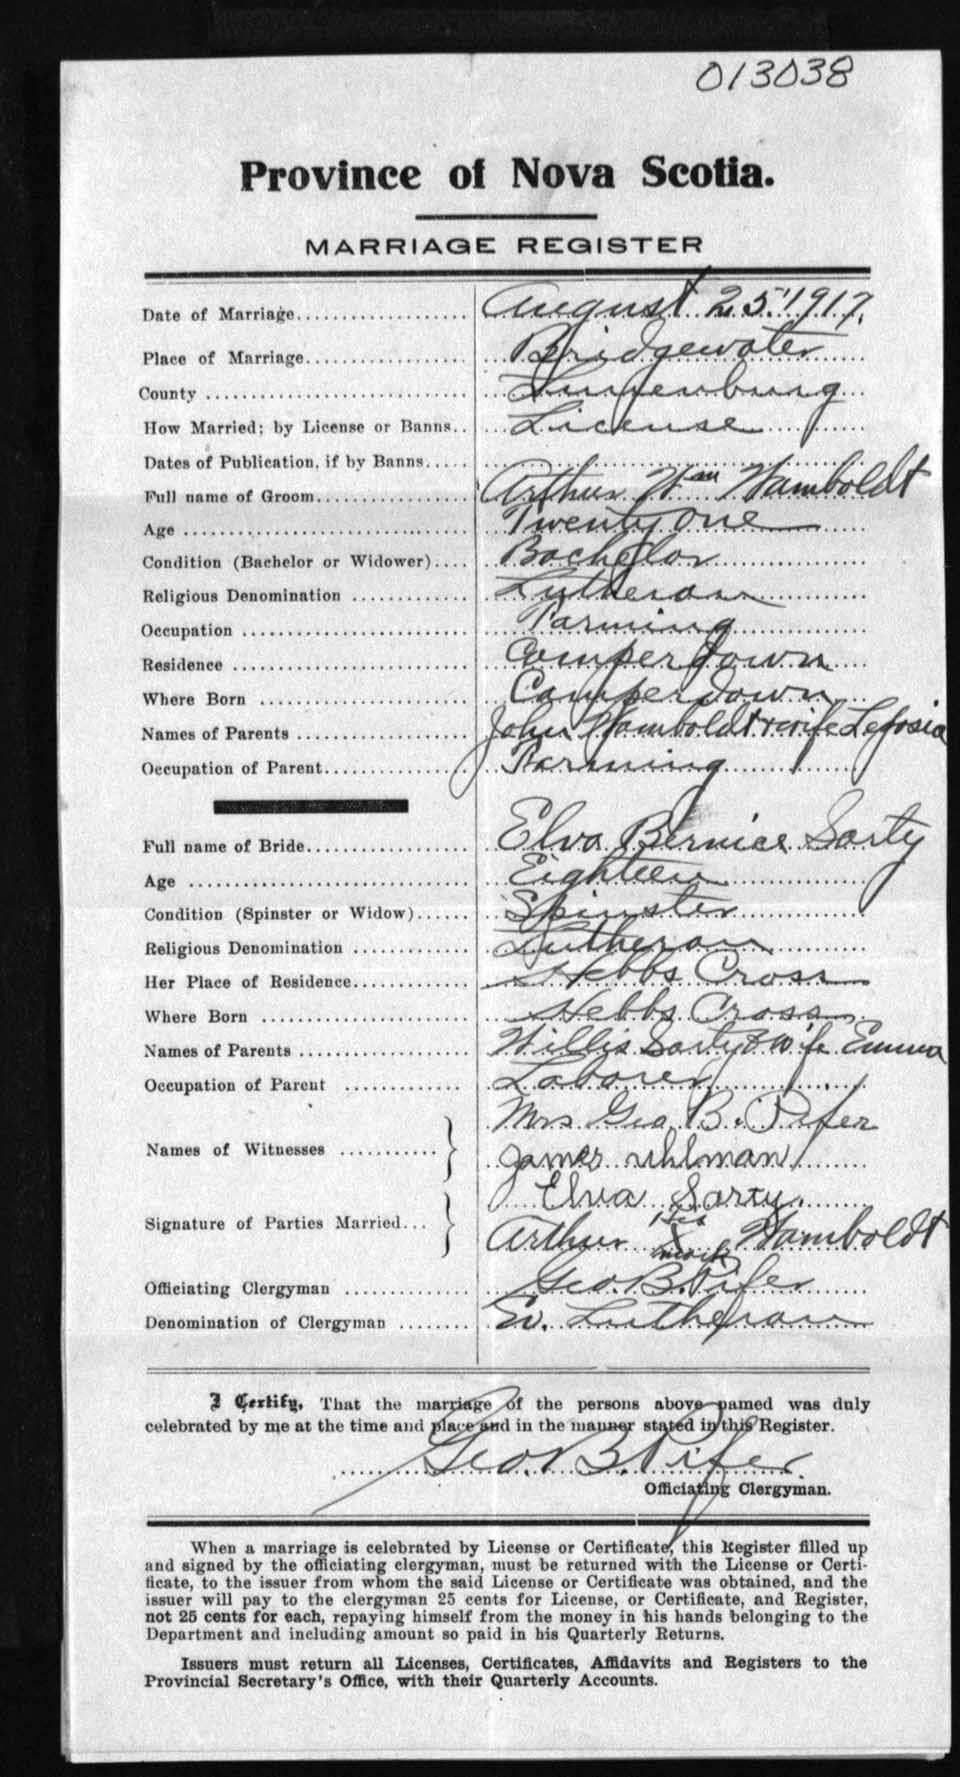 013038
Province of Nova Scotia.
MARRIAGE REGISTER
Date of Marriage................... August 25. 1917.
Place of Marriage.................. Bridgewater
County ............................ Lunenburg
How Married; by License or Banns.. License
Dates of Publication, if by Banns.....
Full name of Groom................. Arthur Wm Wamboldt
Age ............................... Twenty One
Condition (Bachelor or Widower).... Bachelor
Religious Denomination ............ Lutheran
Occupation ........................ Farming
Residence ......................... Camperdown
Where Born ........................ Camperdown
Names of Parents .................. John Wamboldt & wife Lefosia
Occupation of Parent............... Farming
Full name of Bride................. Elva Bernice Sarty
Age ............................... Eighteen
Condition (Spinster or Widow)...... Spinster
Religious Denomination ............ Lutheran
Her Place of Residence............. Hebbs Cross
Where Born ........................ Hebbs Cross
Names of Parents .................. Willis Sarty & wife Emma
Occupation of Parent .............. Laborer
Mrs Geo. B. Pifer
Names of Witnesses ...........
James Uhlman
Elva Sarty.
Signature of Parties Married...
Arthur his X mark Wamboldt
Officiating Clergyman ............. Geo. B. Pifer
Denomination of Clergyman ........ Ev. Lutheran
I Certify, That the marriage of the persons above named was duly
celebrated by me at the time and place and in the manner stated in this Register.
Geo. B. Pifer.
Officiating Clergyman.
When a marriage is celebrated by License or Certificate, this Register filled up
and signed by the officiating clergyman, must be returned with the License or Certi-
ficate, to the issuer from whom the said License or Certificate was obtained, and the
issuer will pay to the clergyman 25 cents for License, or Certificate, and Register,
not 25 cents for each, repaying himself from the money in his hands belonging to the
Department and including amount so paid in his Quarterly Returns.
Issuers must return all Licenses, Certificates, Affidavits and Registers to the
Provincial Secretary's Office, with their Quarterly Accounts.